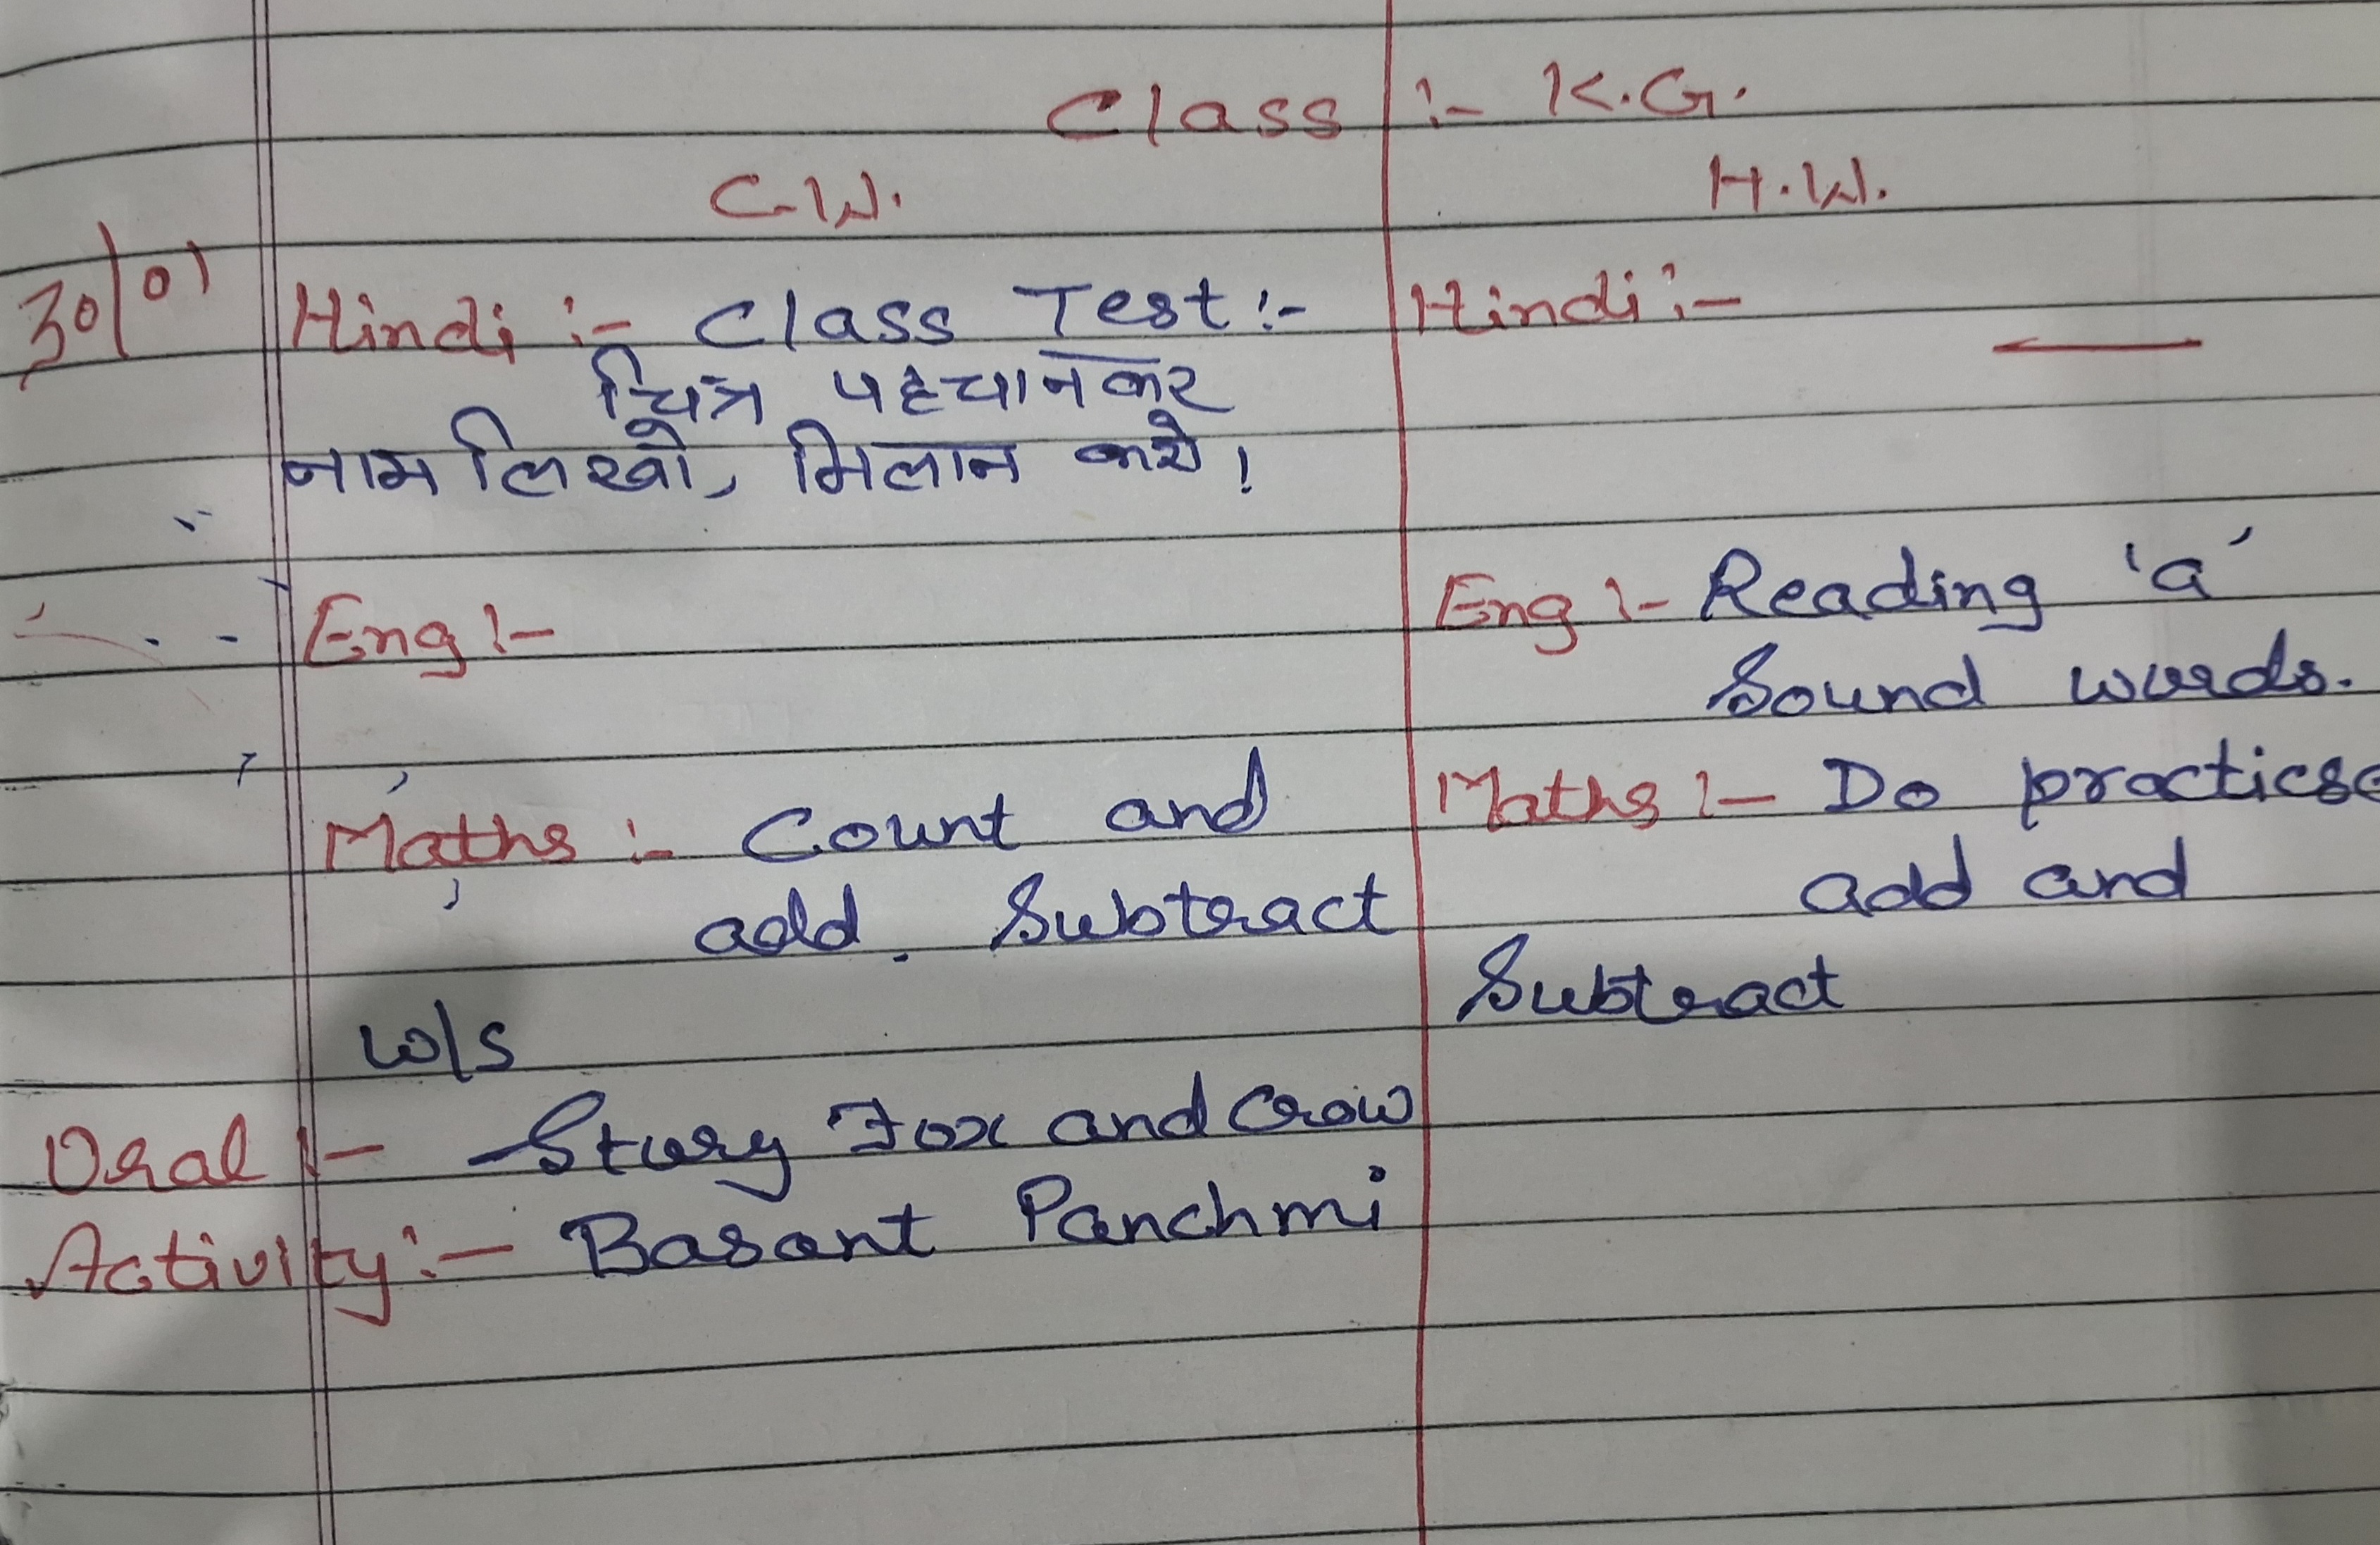 Class :- K.G.
C.W.
H.W.
30/01
Hindi :- Class Test :-
चित्र पहचानकर
नाम लिखो, मिलान करो।
Eng :-
Maths :- Count and
add, Subtract
W/S
Oral :- Story Fox and Crow
Activity :- Basant Panchmi
Hindi :-
Eng :- Reading 'a'
Sound words.
Maths :- Do practicse
add and
Subtract